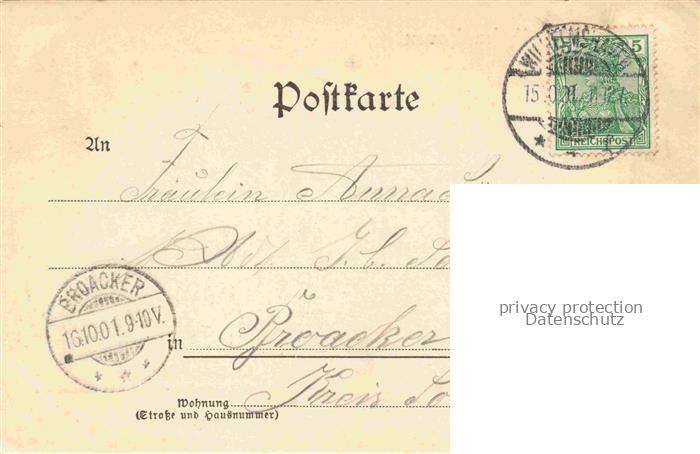 WILHELMSHAVEN
5
5
15.10.01
REICHSPOST
Postkarte
An
Fräulein Anna
Adr. J. C.
privacy protection
Datenschutz
BROACKER
16.10.01.9-10V.
in Broacker
Kreis So
Wohnung
(Straße und Hausnummer)